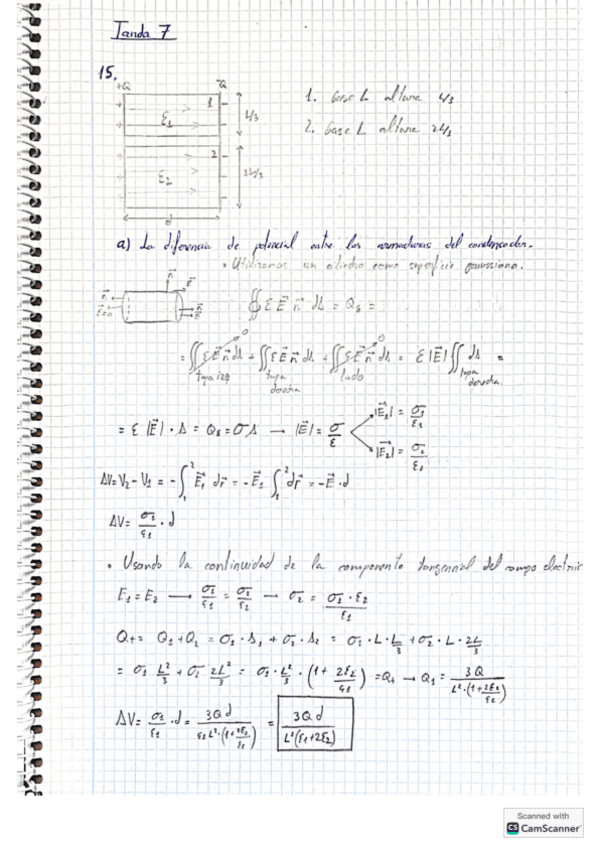 Tanda 7
15.
+Q -Q
ε1 1 L/3
ε2 2 2L/3
d
1. base L altura L/3
2. base L altura 2L/3
a) La diferencia de potencial entre las armaduras del condensador.
• Utilizamos un cilindro como superficie gaussiana.
∯ ε E⃗ n⃗ ds = Qε =
= ∬ ε E⃗ n⃗ ds + ∬ ε E⃗ n⃗ ds + ∬ ε E⃗ n⃗ ds = ε |E⃗| ∬ ds =
tapa izq tapa derecha lado tapa derecha
= ε |E⃗| · s = Qε = σ s → |E⃗| = σ/ε
|E⃗1| = σ1/ε1
|E⃗2| = σ2/ε2
ΔV = V2 - V1 = -∫₁² E⃗1 dr⃗ = -E⃗1 ∫₁² dr⃗ = -E⃗ · d
ΔV = σ1/ε1 · d
• Usando la continuidad de la componente tangencial del campo electric
E1 = E2 → σ1/ε1 = σ2/ε2 → σ2 = σ1 · ε2/ε1
Qt = Q1 + Q2 = σ1 · s1 + σ2 · s2 = σ1 · L · L/3 + σ2 · L · 2L/3
= σ1 L²/3 + σ2 2L²/3 = σ1 · L²/3 · (1 + 2ε2/ε1) = Qt → Q1 = 3Q/(L² · (1 + 2ε2/ε1))
ΔV = σ1/ε1 · d = 3Qd/(ε1 L² · (1 + 2ε2/ε1)) = 3Qd/(L²(ε1 + 2ε2))
Scanned with
CS CamScanner